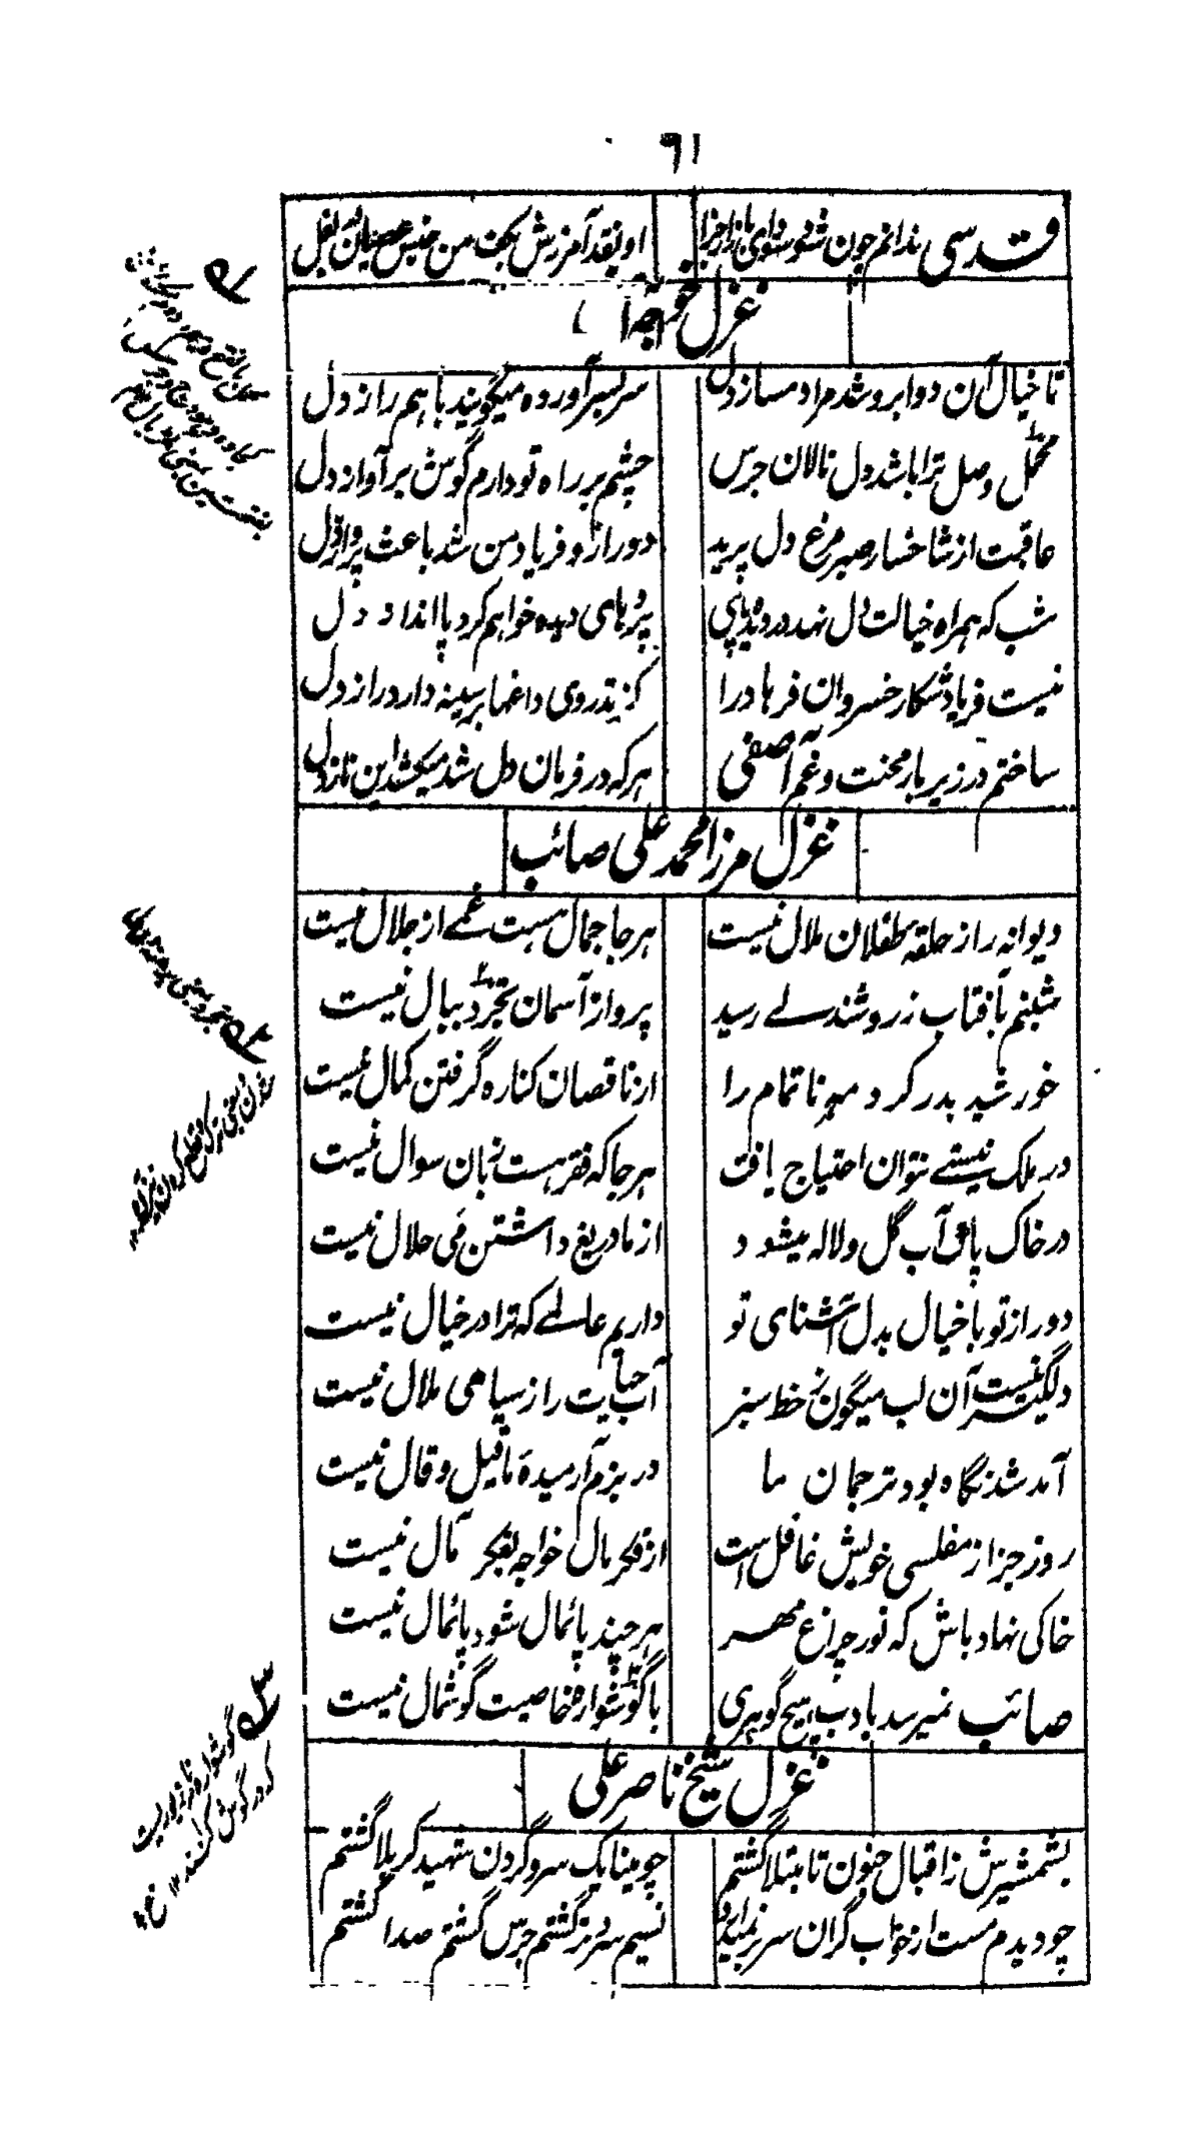 ۹۱
قدسی ندانم چون شود سودای بازار جزا او نقد آمرزش بکف من جنس عصیان در بغل
غزل خواجه آ
تا خیال آن دو ابرو شد مرا دمساز دل سر بسر آورده میگویند با هم راز دل
محمل وصل ترا باشد دل نالان جرس چشم بر راه تو دارم گوش بر آواز دل
عاقبت از شاخسار صبر مرغ دل پرید دور ازو فریاد من شد باعث پرواز دل
شب که همراه خیالت دل نهد در دیده پای پردهای دیده خواهم کرد پا انداز دل
نیست فریاد شکار خسروان فرهاد را کز تذروی داغها بر سینه دارد راز دل
ساختم در زیر بار محنت و غم آصفی هر که در فرمان دل شد میکشد این ناز دل
غزل مرزا محمد علی صائب
دیوانه را ز حلقه طفلان ملال نیست هر جا جمال هست غمے از جلال نیست
شبنم بآفتاب ز روشندلے رسید پرواز آسمان تجرد ببال نیست
خورشید بدر کرد مه ناتمام را از ناقصان کناره گرفتن کمال نیست
در ملک نیستے نتوان احتیاج یافت هر جا که فقر هست زبان سوال نیست
در خاک پاک آب گل و لاله میشود از ما دریغ داشتن می حلال نیست
دور از تو با خیال بدل آشنای تو داریم عالمے که ترا در خیال نیست
دلگیر نیست آن لب میگون ز خط سبز آب حیات را ز سیاهی ملال نیست
آمد شد نگاه بود ترجمان ما در بزم آرمیدهٔ ما قیل و قال نیست
روز جزا ز مفلسی خویش غافل است از فکر مال خواجه بفکر مآل نیست
خاکی نهاد باش که نور چراغ مهر هر چند پائمال شود پائمال نیست
صائب نمیرسد بادب هیچ گوهری با گوشواره خاصیت گوشمال نیست
غزل شیخ ناصر علی
بشمشیرش ز اقبال جنون تا مبتلا گشتم چو مینا یک سر و گردن شهید کربلا گشتم
چو دیدم مست از خواب گران سر بر نمیدارد نسیم سرد تر گشتم جرس گشتم صدا گشتم
۳ گوشواره نام زیوریست
که در گوش کنند ۱۲